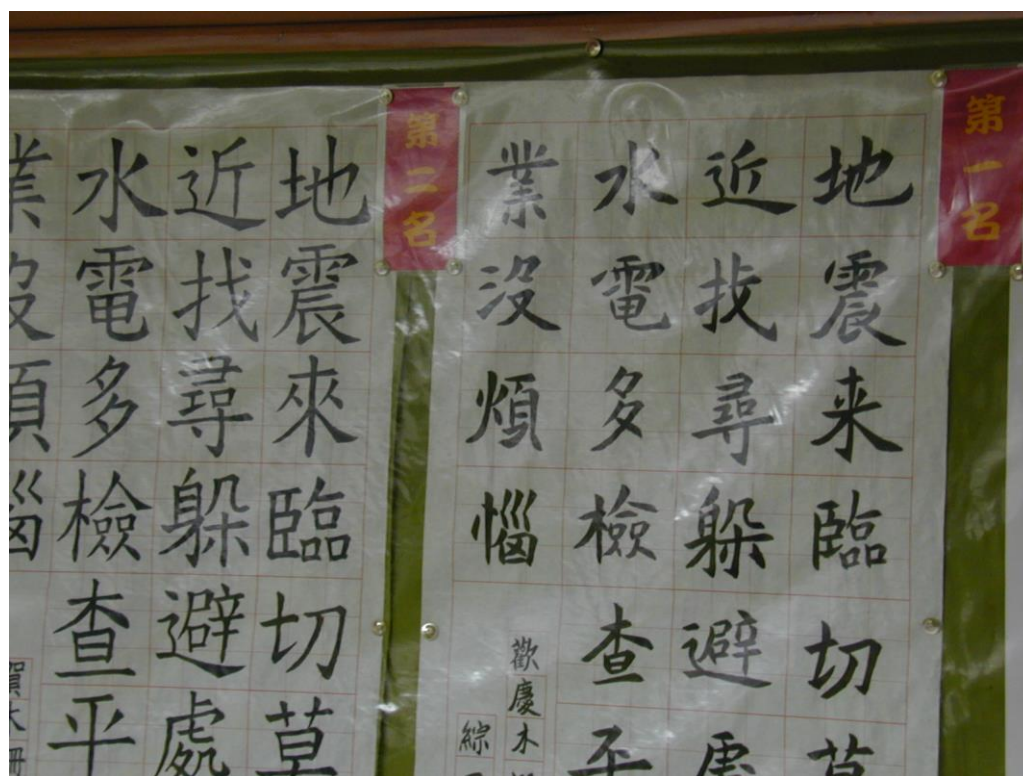 第一名
地震来臨切莫
近找尋躲避處
水電多檢查平
業没煩惱
歡慶木
綜
第二名
地震來臨切莫
近找尋躲避處
水電多檢查平
業没煩惱